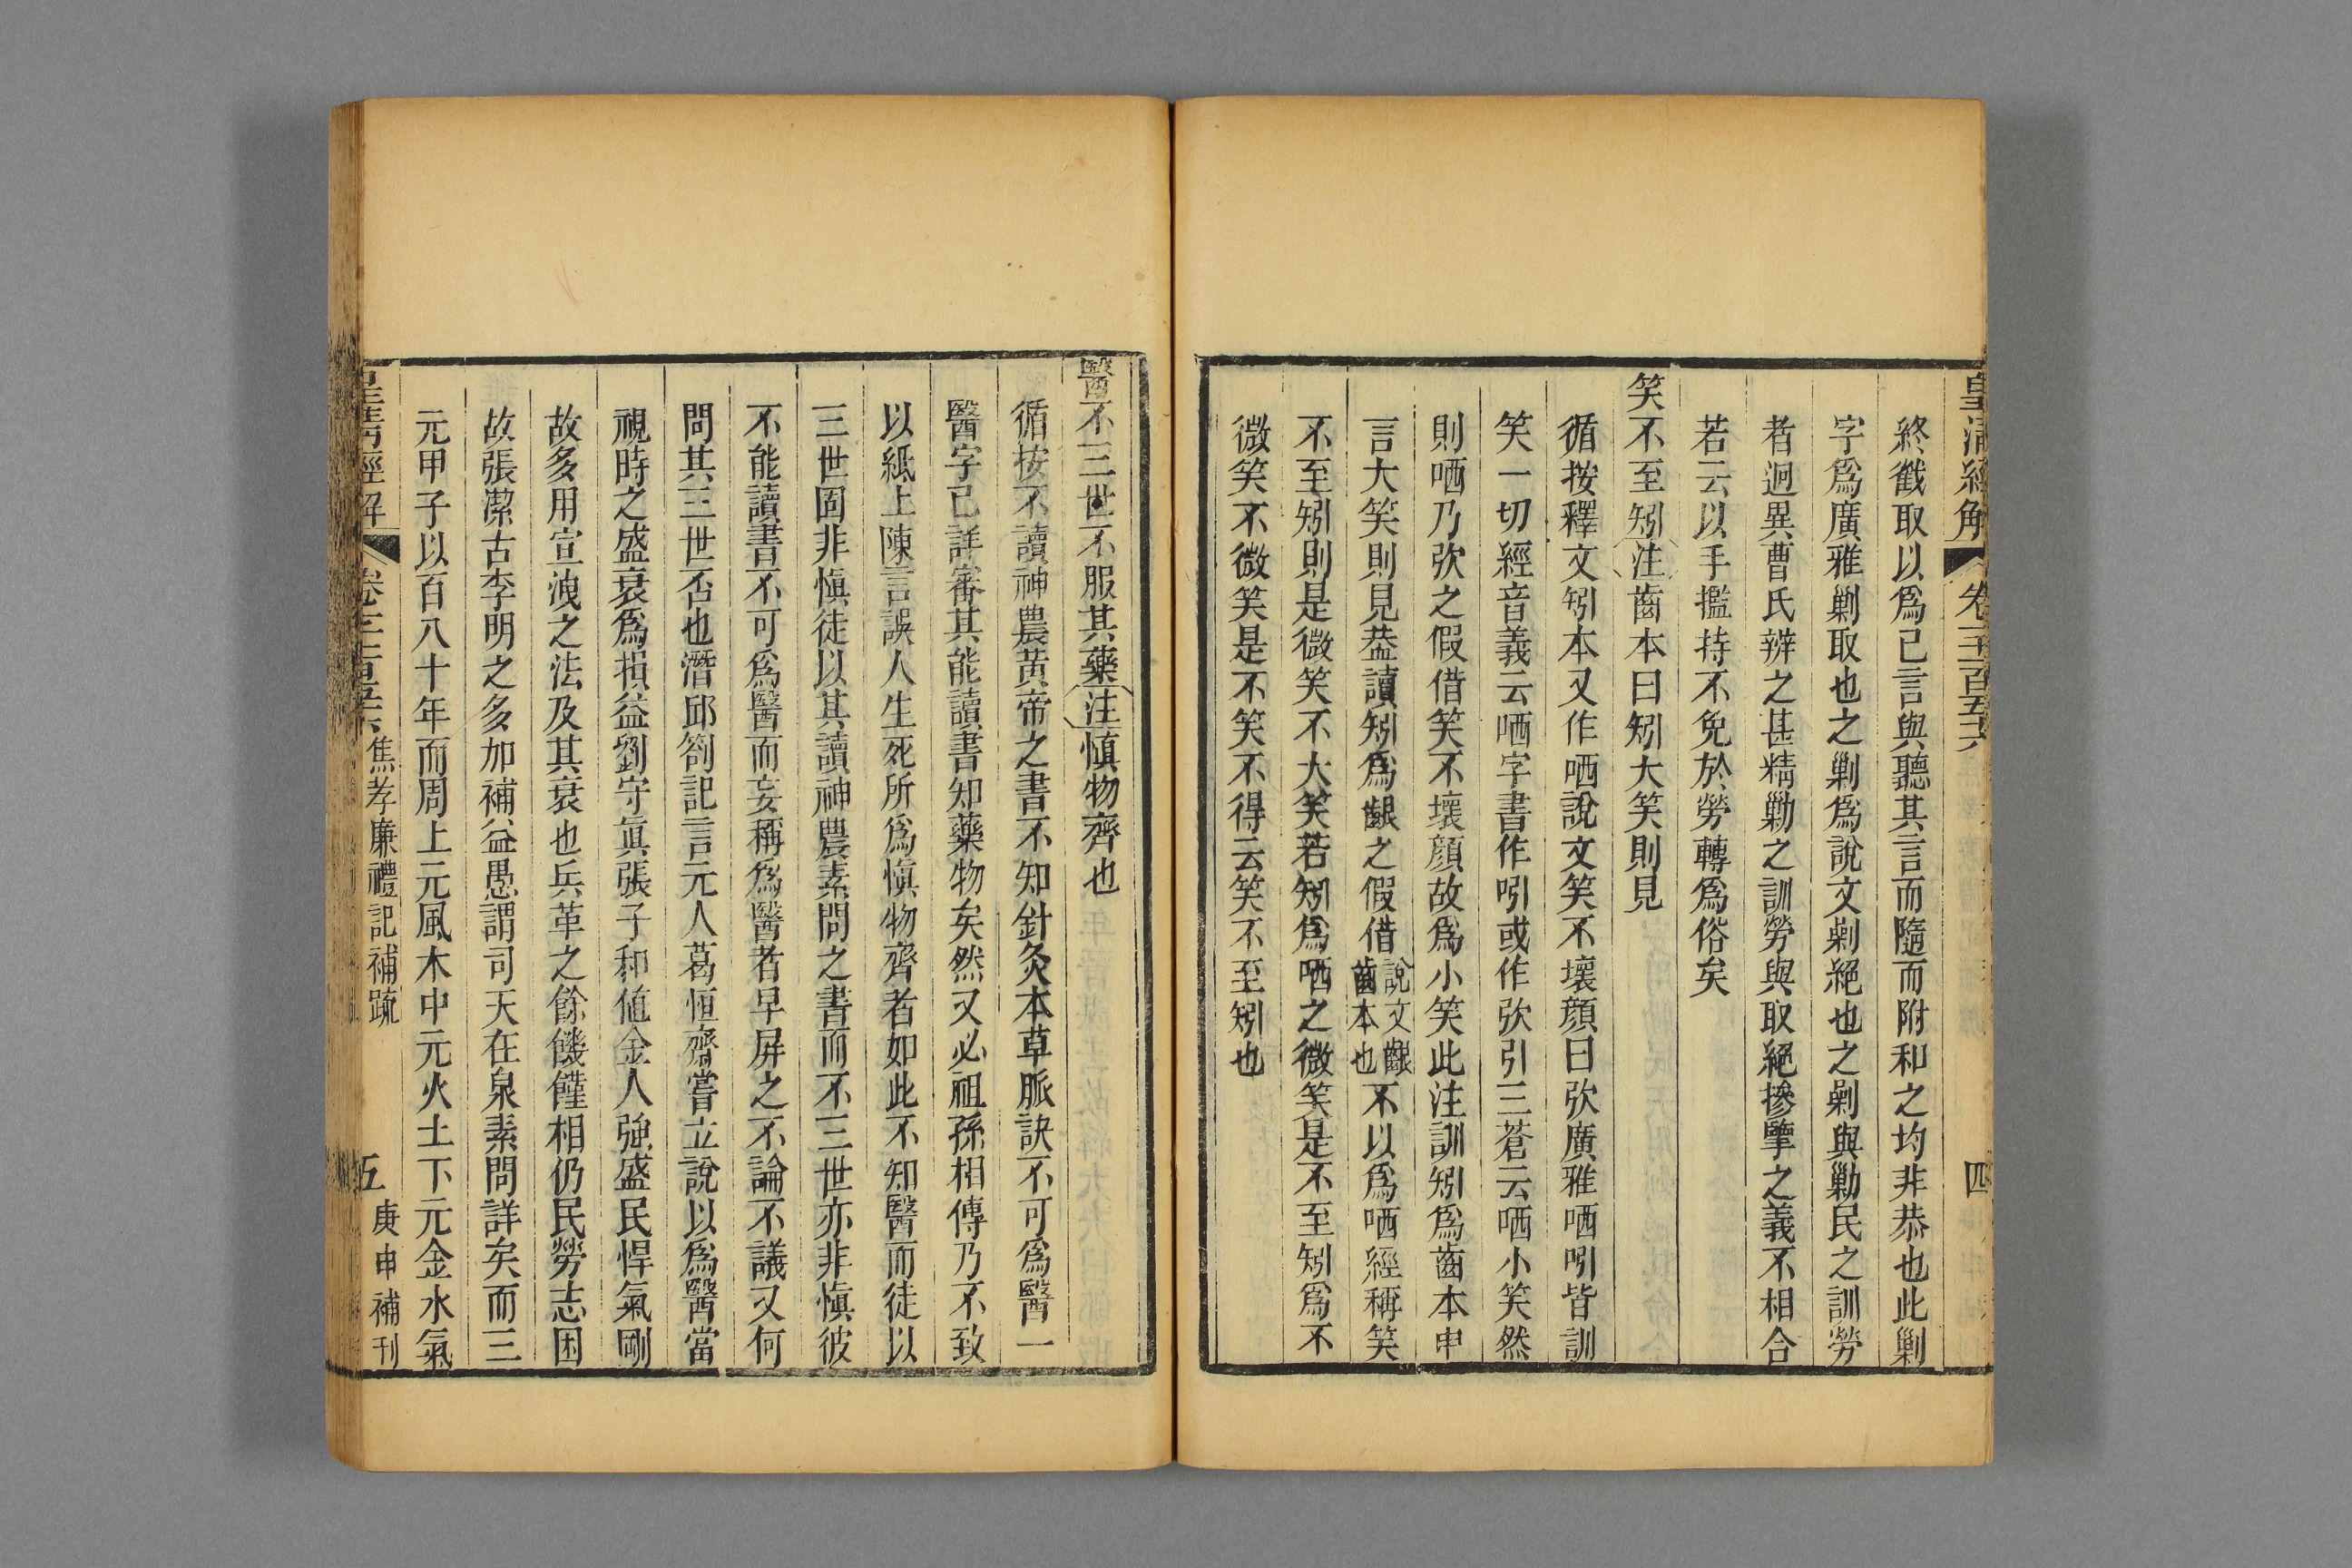 皇清經解
卷一千一百五十六
四
終戳取以爲己言與聽其言而隨而附和之均非恭也此剿
字爲廣雅剿取也之剿爲說文剿絕也之剿與勦民之訓勞
者迥異曹氏辨之甚精勦之訓勞與取絕摻擊之義不相合
若云以手擥持不免於勞轉爲俗矣
笑不至矧注齒本曰矧大笑則見
循按釋文矧本又作哂說文笑不壞顏曰弞廣雅哂吲皆訓
笑一切經音義云哂字書作吲或作弞引三蒼云哂小笑然
則哂乃弞之假借笑不壞顏故爲小笑此注訓矧爲齒本申
言大笑則見葢讀矧爲齦之假借說文齦齒本也不以爲哂經稱笑
不至矧則是微笑不大笑若矧爲哂之微笑是不至矧爲不
微笑不微笑是不笑不得云笑不至矧也
醫不三世不服其藥注慎物齊也
循按不讀神農黃帝之書不知針灸本草脈訣不可爲醫一
醫字已詳審其能讀書知藥物矣然又必祖孫相傳乃不致
以紙上陳言誤人生死所爲慎物齊者如此不知醫而徒以
三世固非慎徒以其讀神農素問之書而不三世亦非慎彼
不能讀書不可爲醫而妄稱爲醫者早屏之不論不議又何
問其三世否也潛邱劄記言元人葛恒齋嘗立說以爲醫當
視時之盛衰爲損益劉守眞張子和値金人強盛民悍氣剛
故多用宣洩之法及其衰也兵革之餘饑饉相仍民勞志困
故張潔古李明之多加補益愚謂司天在泉素問詳矣而三
元甲子以百八十年而周上元風木中元火土下元金水氣
皇清經解
卷一千一百五十六
焦孝廉禮記補疏
五
庚申補刊